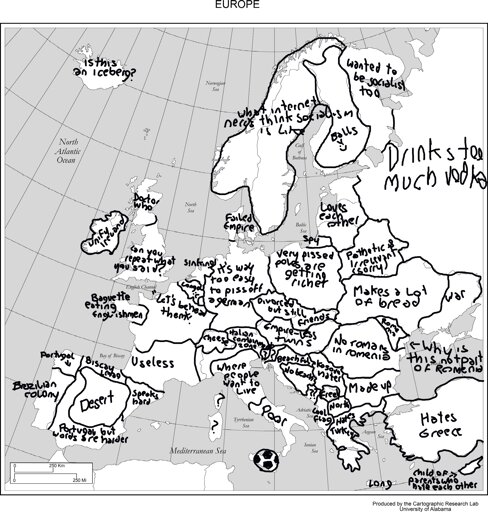 EUROPE
is this
an iceberg?
Norwegian
Sea
wanted to
be socialist
too
what internet
nerds think socialism
is like
Balls
North
Atlantic
Ocean
Gulf
of
Bothnia
Drinks too
much vodka
Doctor
who
North
Sea
Failed
Empire
Baltic
Sea
Loves
each
other
unify
ireland
can you
repeat what
you said?
Spy
Very pissed
poles are
getting
richer
Pathetic &
irrelevant
(sorry)
English Channel
it's way
too easy
to piss off
a german
Makes a Lot
of bread
war
Baguette
eating
Englishmen
Let's behead
them.
Divorced
but still
friends
Empire-less
twins
cheese
Italian
No romans
in romenia
<- Why is
this not part
of Romenia
Portugal
Bay of Biscay
Useless
where
people
want to
live
Made up
Brazilian
colony
Desert
Speaks
hard
?
Poor
Hates
Greece
Portugal but
words are harder
Tyrrhenian
Sea
Ionian
Sea
Mediterranean Sea
child of
parents who
hate each other
0
250 KM
0
250 MI
LOND
Produced by the Cartographic Research Lab
University of Alabama